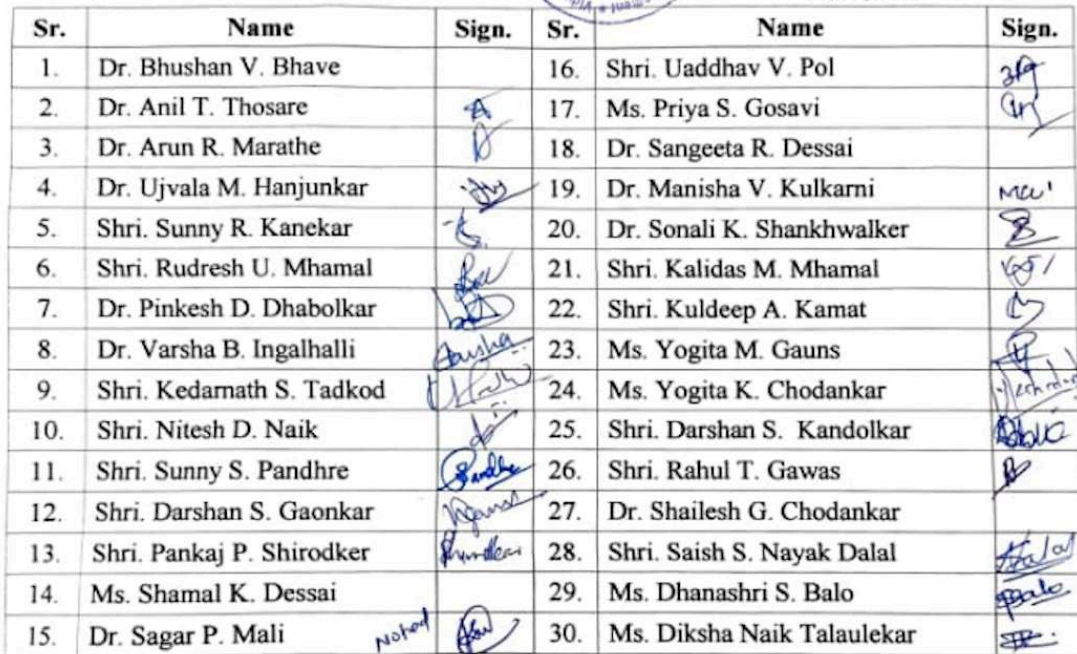 Sr. Name Sign. Sr. Name Sign.
1. Dr. Bhushan V. Bhave 16. Shri. Uaddhav V. Pol
2. Dr. Anil T. Thosare 17. Ms. Priya S. Gosavi
3. Dr. Arun R. Marathe 18. Dr. Sangeeta R. Dessai
4. Dr. Ujvala M. Hanjunkar 19. Dr. Manisha V. Kulkarni
5. Shri. Sunny R. Kanekar 20. Dr. Sonali K. Shankhwalker
6. Shri. Rudresh U. Mhamal 21. Shri. Kalidas M. Mhamal
7. Dr. Pinkesh D. Dhabolkar 22. Shri. Kuldeep A. Kamat
8. Dr. Varsha B. Ingalhalli 23. Ms. Yogita M. Gauns
9. Shri. Kedarnath S. Tadkod 24. Ms. Yogita K. Chodankar
10. Shri. Nitesh D. Naik 25. Shri. Darshan S. Kandolkar
11. Shri. Sunny S. Pandhre 26. Shri. Rahul T. Gawas
12. Shri. Darshan S. Gaonkar 27. Dr. Shailesh G. Chodankar
13. Shri. Pankaj P. Shirodker 28. Shri. Saish S. Nayak Dalal
14. Ms. Shamal K. Dessai 29. Ms. Dhanashri S. Balo
15. Dr. Sagar P. Mali Noted 30. Ms. Diksha Naik Talaulekar